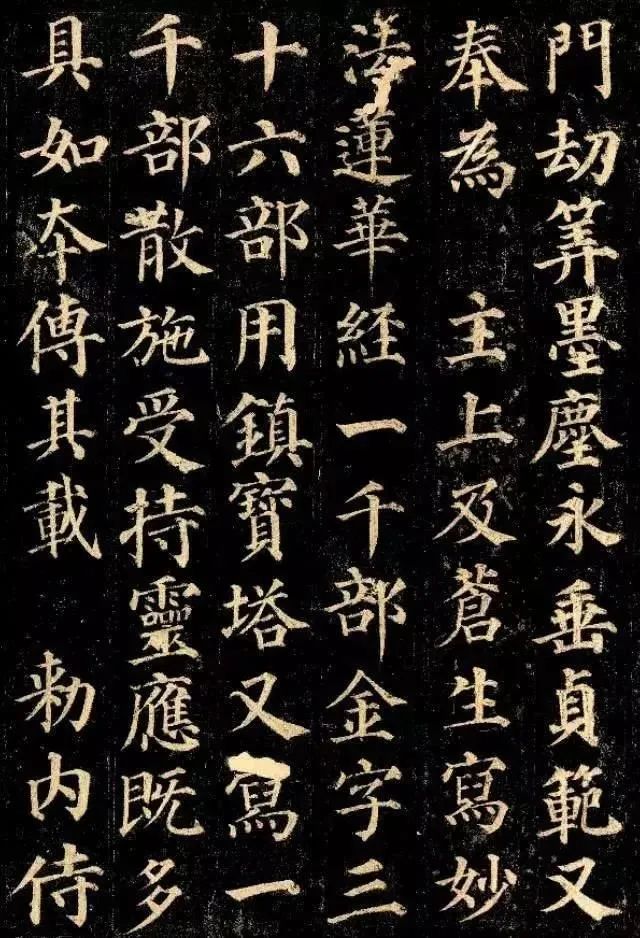 門劫筭墨塵永垂貞範又
奉為 主上及蒼生寫妙
法蓮華経一千部金字三
十六部用鎮寶塔又寫一
千部散施受持靈應既多
具如夲傳其載 勑内侍